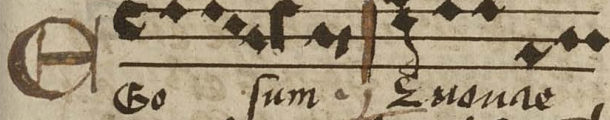 EGo sum Euouae